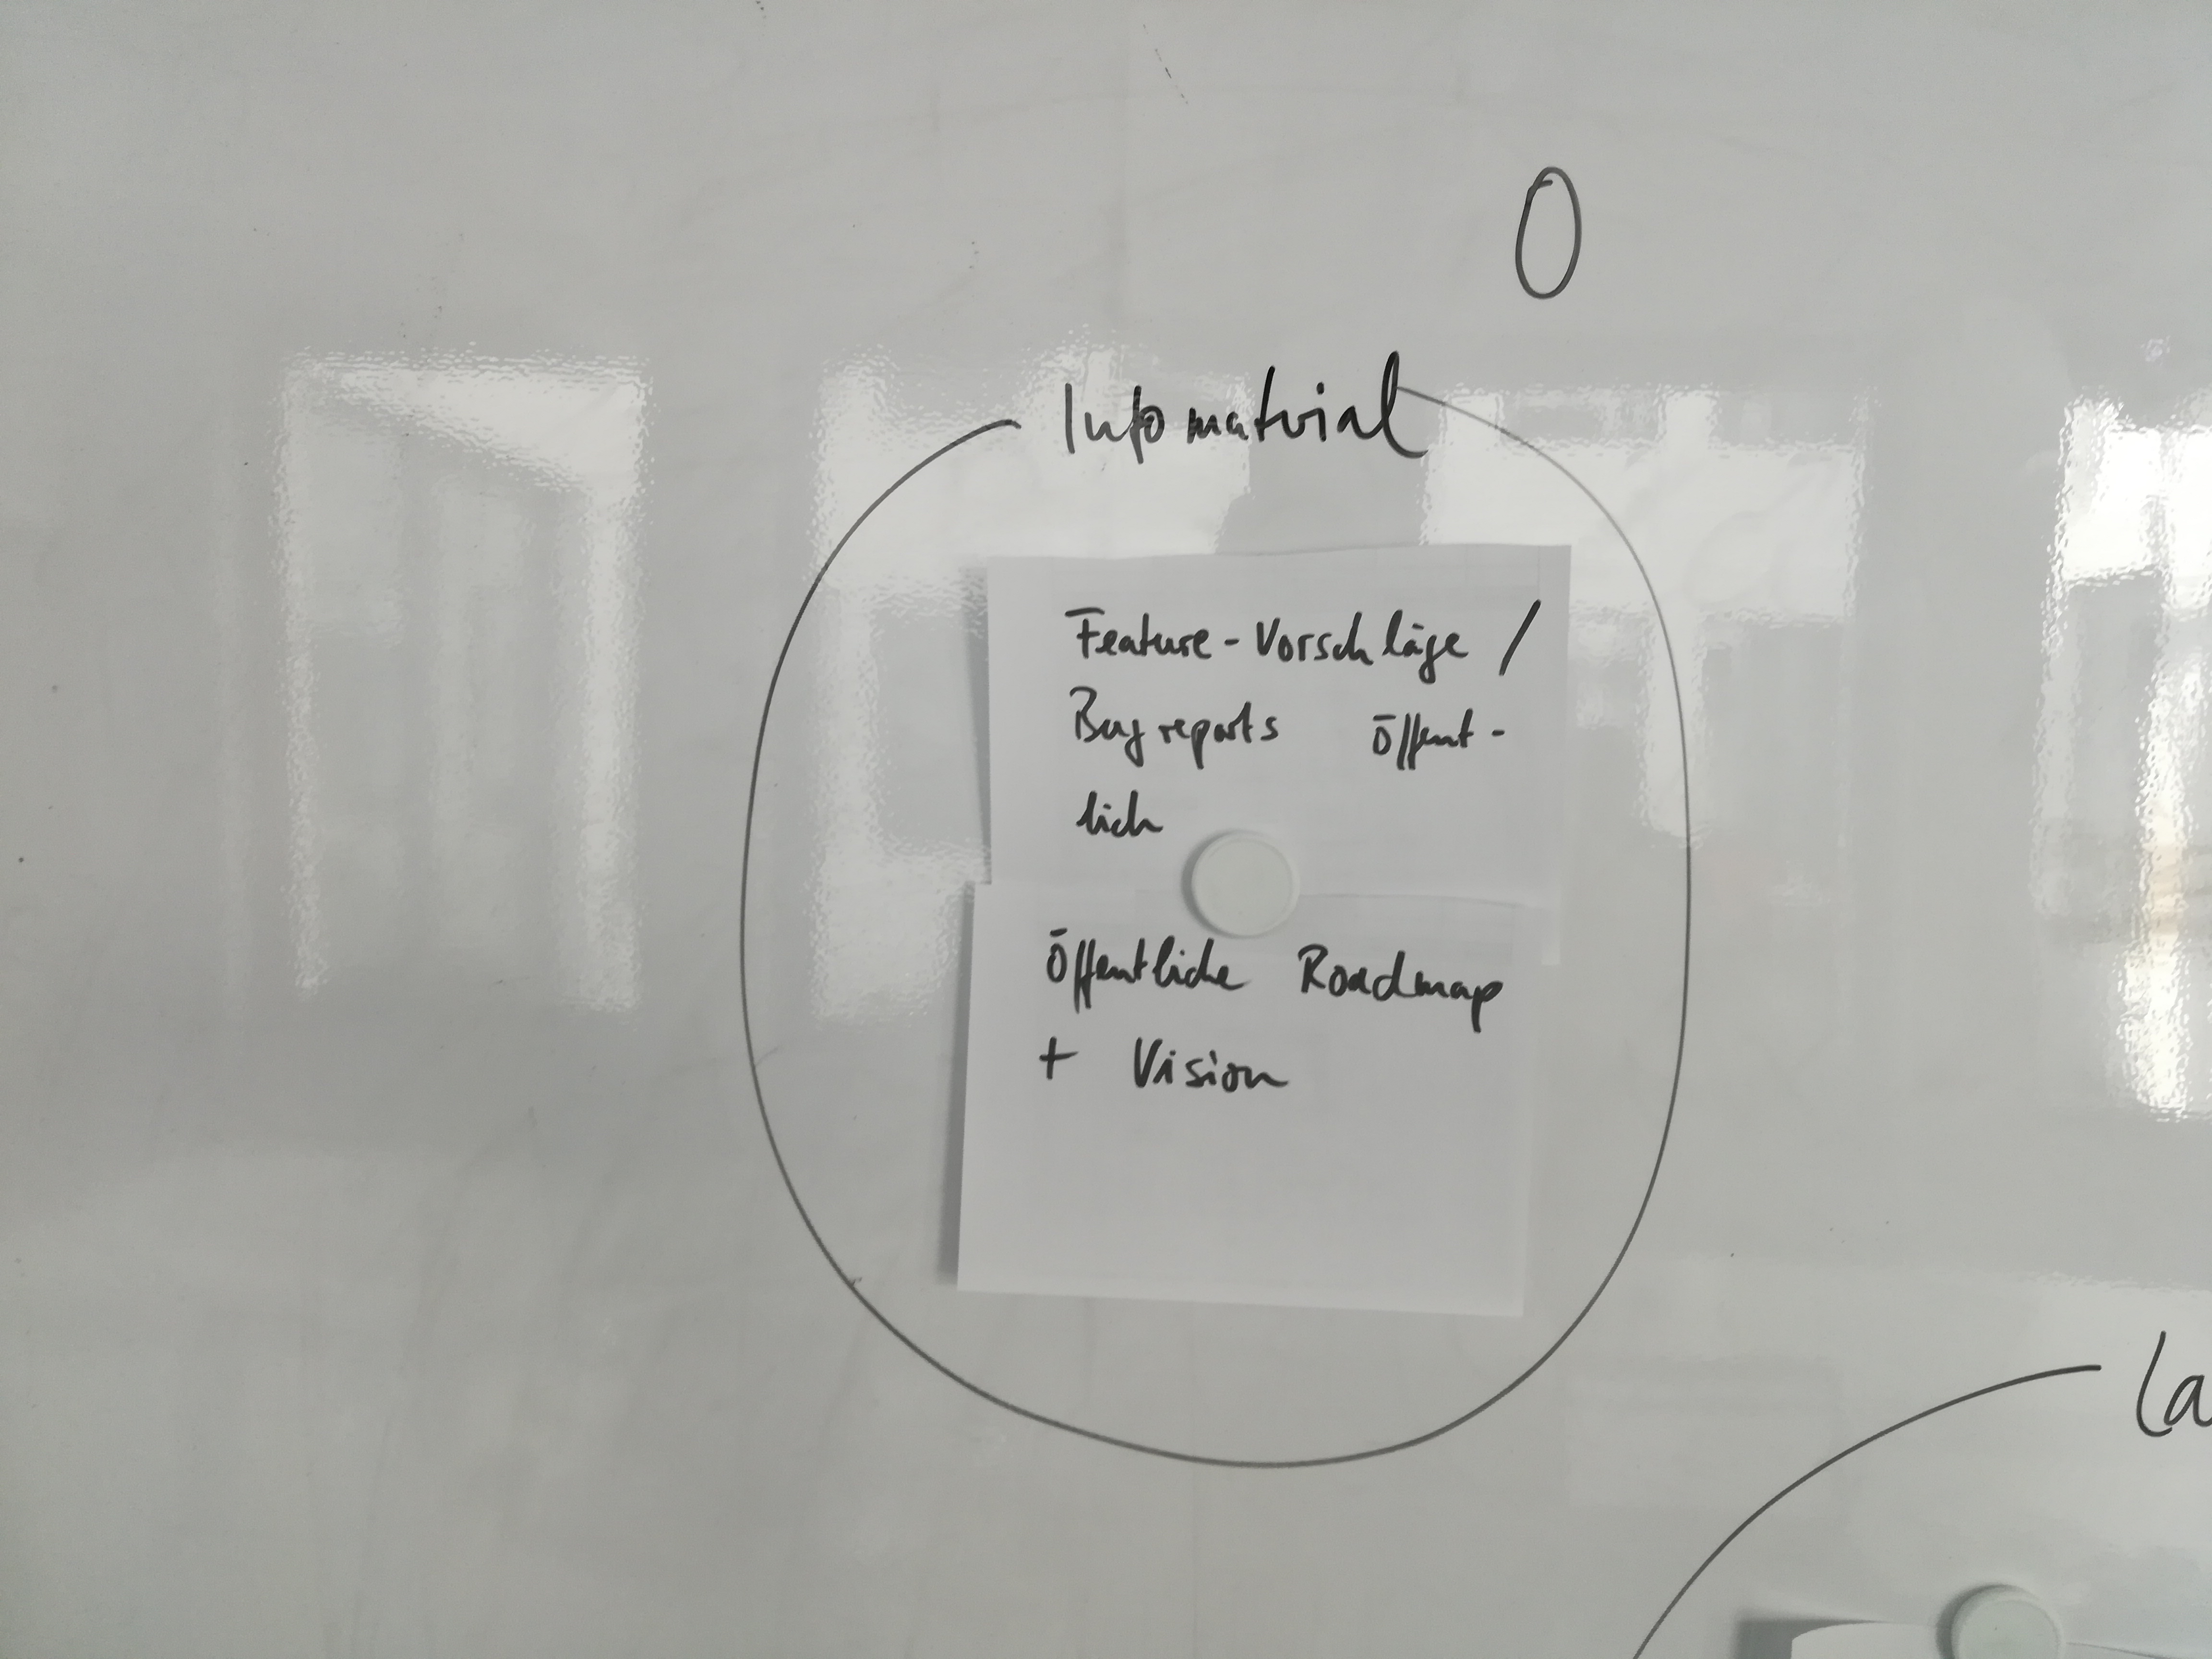 0
Infomaterial
Feature-Vorschläge /
Bugreports öffent-
lich
Öffentliche Roadmap
+ Vision
La